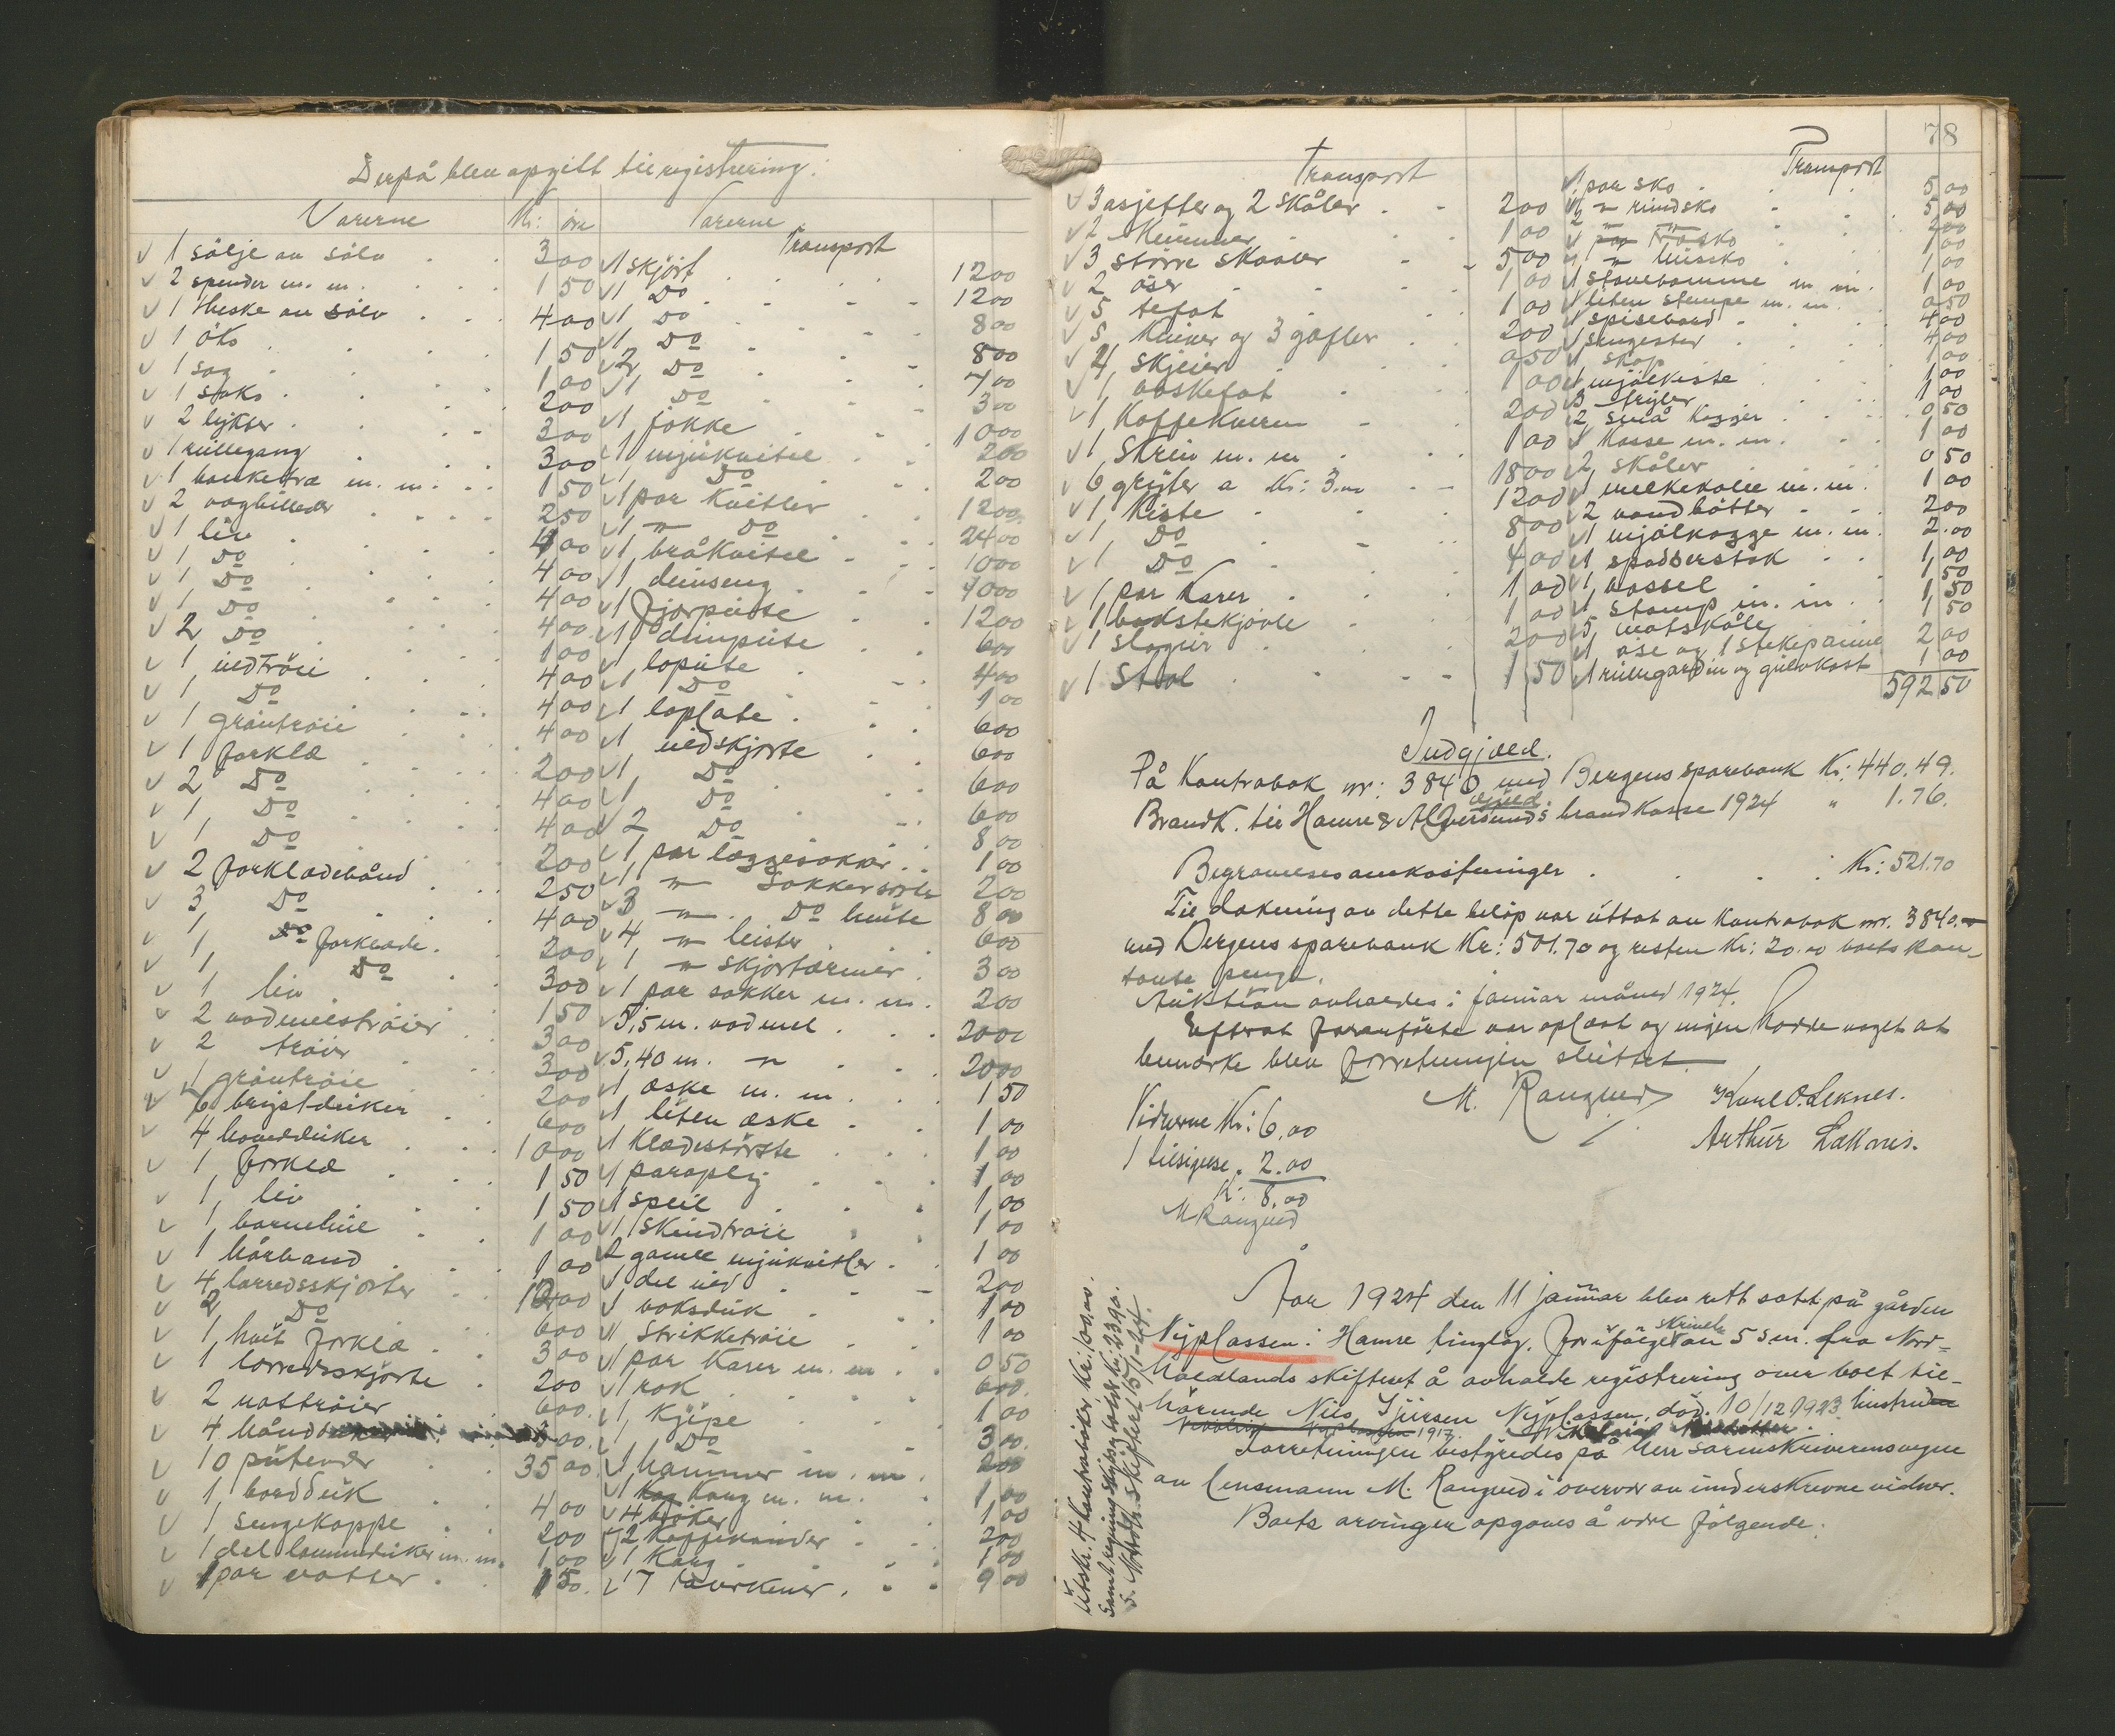 Derpå blev opgitt til registrering:
Varerne Kr: öre
✓ 1 sölje av sölv . . 3 00
✓ 2 spender m. m. . . . 1 50
✓ 1 Heske av sölv . . . 4 00
✓ 1 öks . . . . 1 50
✓ 1 sag . . . . 1 00
✓ 1 saks . . . . 2 00
✓ 2 lykter . . . . 3 00
✓ 1 rullegang . . . 3 00
✓ 1 banketræ m. m. . . 1 50
✓ 2 vægbilleder . . . . 2 50
✓ 1 liv . . . . 4 00
✓ 1 Do . . . . 4 00
✓ 1 Do . . . . 4 00
✓ 1 Do . . . . 4 00
✓ 2 Do . . . . 1 00
✓ 1 uldtröie . . . 4 00
✓ 1 Do . . . 4 00
✓ 1 gråntröie . . . 4 00
✓ 1 forklæ . . . . 2 00
✓ 2 Do . . . . 4 00
✓ 1 Do . . . 4 00
✓ 1 Do . . . 2 00
✓ 2 forklædebånd . . . 2 50
✓ 3 Do . . . 4 00
1 Do forklæde . 2 00
✓ 1 Do . 3 00
✓ 1 liv . . . 1 50
✓ 2 vadmelströier . . 3 00
✓ 2 tröier . . 3 00
✓ 1 gråntröie . . 2 00
✓ 6 brystduker . . 6 00
✓ 4 hovedduker . . . 10 00
✓ 1 forklæ . . . 1 50
✓ 1 liv . . . 1 50
✓ 1 barnehue . . 1 00
✓ 1 hårband . . . 1 00
✓ 4 lærredsskjorter . . 12 00
✓ 2 Do . . 6 00
✓ 1 hvit forklæ . . 3 00
✓ 1 lærredsskjorte . 2 00
✓ 2 nattröier . . 6 00
✓ 4 hånd 3 00
✓ 10 putevår . . 35 00
✓ 1 bordduk . . 4 00
✓ 1 sengekappe . . 2 00
✓ 1 del lommeduker m. m. 1 00
✓ 1 par votter . . 1 50
Varerne
Transport
✓ 1 skjört . . . . 12 00
✓ 1 Do . . . . 12 00
✓ 1 Do . . . 8 00
✓ 1 Do . . . 8 00
✓ 2 Do . . . 7 00
✓ 1 Do . . . 3 00
✓ 1 jakke . . . 10 00
✓ 1 mjukvitel . . . 2 00
✓ 1 Do . . 2 00
✓ 1 par kvitler . . 12 00
✓ 1 " Do . . 24 00
✓ 1 bråkvitel . . . 10 00
✓ 1 dunseng . . . 40 00
✓ 1 fjorpute . . 12 00
✓ 1 dunpute . . 6 00
✓ 1 lopute . . . 4 00
✓ 1 Do . . 1 00
✓ 1 loplate . . 6 00
✓ 1 uldskjorte . . 6 00
✓ 1 Do . . 6 00
✓ 1 Do . . 6 00
✓ 2 Do . . 8 00
✓ 1 par læggesokker . . 1 00
✓ 1 " Sokker sorte 2 00
✓ 3 " Do hvite 8 00
✓ 4 " leister . . 6 00
✓ 1 " skjortærmer . 3 00
✓ 1 par sokker m. m. . 2 00
✓ 5,5 m. vadmel . . . 20 00
✓ 5,40 m. " . . . 20 00
✓ 1 æske m. m. . . 1 50
✓ 1 liten æske . . 1 00
✓ 1 klædesbörste . . . 1 00
✓ 1 paraply . . . 1,00
✓ 1 speil . . . 1,00
✓ 1 skindtröie . . . 1 00
✓ 2 gamle mjukvitler . . 1 00
✓ 1 del uld . . . 2 00
✓ 1 voksduk . . . 1 00
✓ 1 Strikketröie . . 1 00
✓ 1 par Karer m. m. . . 0 50
✓ 1 rok . . . 6 00
✓ 1 Kjipe . . . 1 00
✓ 1 Do . . 3 00
✓ 1 hammer m. m. . 2 00
✓ 1 Korg m. m. . 1,00
✓ 4 bøker . . 1,00
✓ 2 Kaffekander . 2 00
✓ 1 Korg . . . 1 00
✓ 7 tavrkener . . . 9 00
Transport
✓ 3 asjetter og 2 skåler . . 2 00
✓ 2 Kummer . . . 1 00
✓ 3 större skaaler . . 5 00
✓ 2 öser . . . 1 00
✓ 5 tefat . . . 1 00
✓ 5 Kniver og 3 gafler . . 2 00
✓ 4 skjeier . . . 0 50
✓ 1 vaskefat . . . 1 00
✓ 1 Kaffekvern . . 2 00
✓ 1 Skrin m. m . . 1 00
✓ 6 gryter a Kr: 3.00 . . 18 00
✓ 1 Kiste . . . 12 00
✓ 1 Do . . 8 00
✓ 1 Do . . 4 00
✓ 1 par Karer . . 1 00
✓ 1 bakstekjövle . . 1 00
✓ 1 slaguir . . . 2 00
✓ 1 Stol . . . 1 50
78
Transport
✓ 1 par sko . . . 5 00
✓ 1 " rundsko . . 5 00
✓ 2 " " . . 2 00
✓ 1 par træsko . . 1 00
✓ 1 " huissko . . 1 00
✓ 1 stavebomme m. m. 1 00
✓ 1 liten stampe m. m. 0 50
✓ 1 spisebord . . . 4 00
✓ 1 sengested . . . 4 00
✓ 1 skap . . . 1 00
✓ 1 mjölkiste . . 1 00
✓ 3 tryler . . 1 00
2 små kagger . . 0 50
✓ 1 Kasse m. m. . . 1 00
✓ 2 skåler . . . 0 50
✓ 1 melkekolle m. m. 1 00
✓ 2 vandbötter . . 2 00
✓ 1 mjölkagge m. m. 2.00
✓ 1 spadserstok . . 1,00
✓ 1 vassel . . . 1,50
✓ 1 stamp m. m. . 1 50
✓ 5 matskåle . . 1 50
✓ 1 öse og 1 stekepanne 2 00
✓ 1 rullegardin og gulvkost 1 00
592 50
Indgjæld.
På Kontrabok nr: 3840 med Bergens sparebank Kr: 440.49.
gjæld.
Brandk. til Hamre & Alversunds brandkasse 1924 " 1.76.
Begravelsesomkostninger . . . . Kr: 521.70
Til dækning av dette belöp var uttat av Kontrabok nr. 3840.
med Bergens sparebank Kr: 501.70 og resten Kr: 20.00 boets kon-
tante penge.
Auktion avholdes i januar måned 1924.
Efterat foranförte var oplæst og ingen hadde noget at
bemærke blev forretningen sluttet.
M. Rangved Karl O. Leknes.
Arthur Leknes.
Vidnerne Kr: 6,00
1 tilsigelse . 2.00
Kr. 8.00
M Rangved
Utskr. 4 kontrabøker Kr: 100,00.
Samt regning skyds og kost Kr. 23.90.
S. Nordh. Skifteret 15/1-24.
Aar 1924 den 11 januar blev rett satt på gården
Nyplassen i Hamre tinglag. for ifölge skrivelse av 5 s.m. fra Nord-
håedlands skifteret å avholde registrering over boet til-
hörende Nils Sjursen Nyplassen, död 10/12 1923 hustruen
Nyplassen 1917.
Forretningen bestyredes på herr sorenskriverens vegne
av lensmann M. Rangved i overvær av underskrevne vidner.
Boets arvinger opgaves å være fölgende: